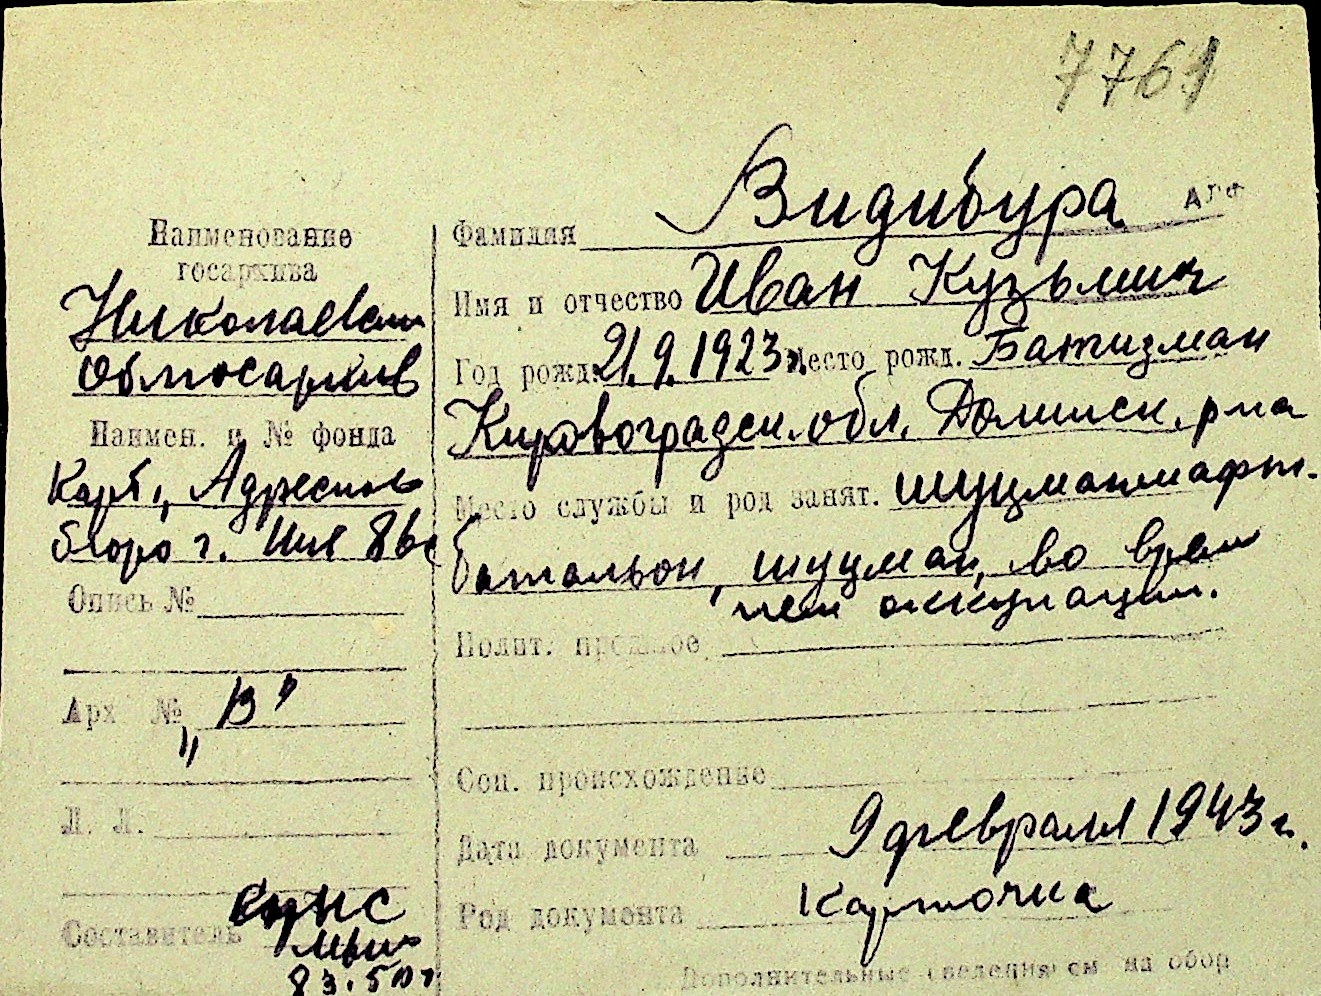 7761
Видибура
Наименование
госархива
Николаевский
Облгосархив
Наимен. и № фонда
Карт., Адресного
бюро г.
Опись №
Арх № „В"
Л. Л.
Составитель
Фамилия
Имя и отчество Иван Кузьмич
Год рожд. 21.9.1923г. Место рожд. Батизман
Кировоградск. обл. Долинск. р-на
Место службы и род занят. шуцманшафт.
батальон, шуцман, во врем
оккупации.
Полит. прошлое
Соц. происхождение
Дата документа 9 февраля 1943 г.
Род документа Карточка
Дополнительные сведения см на обор